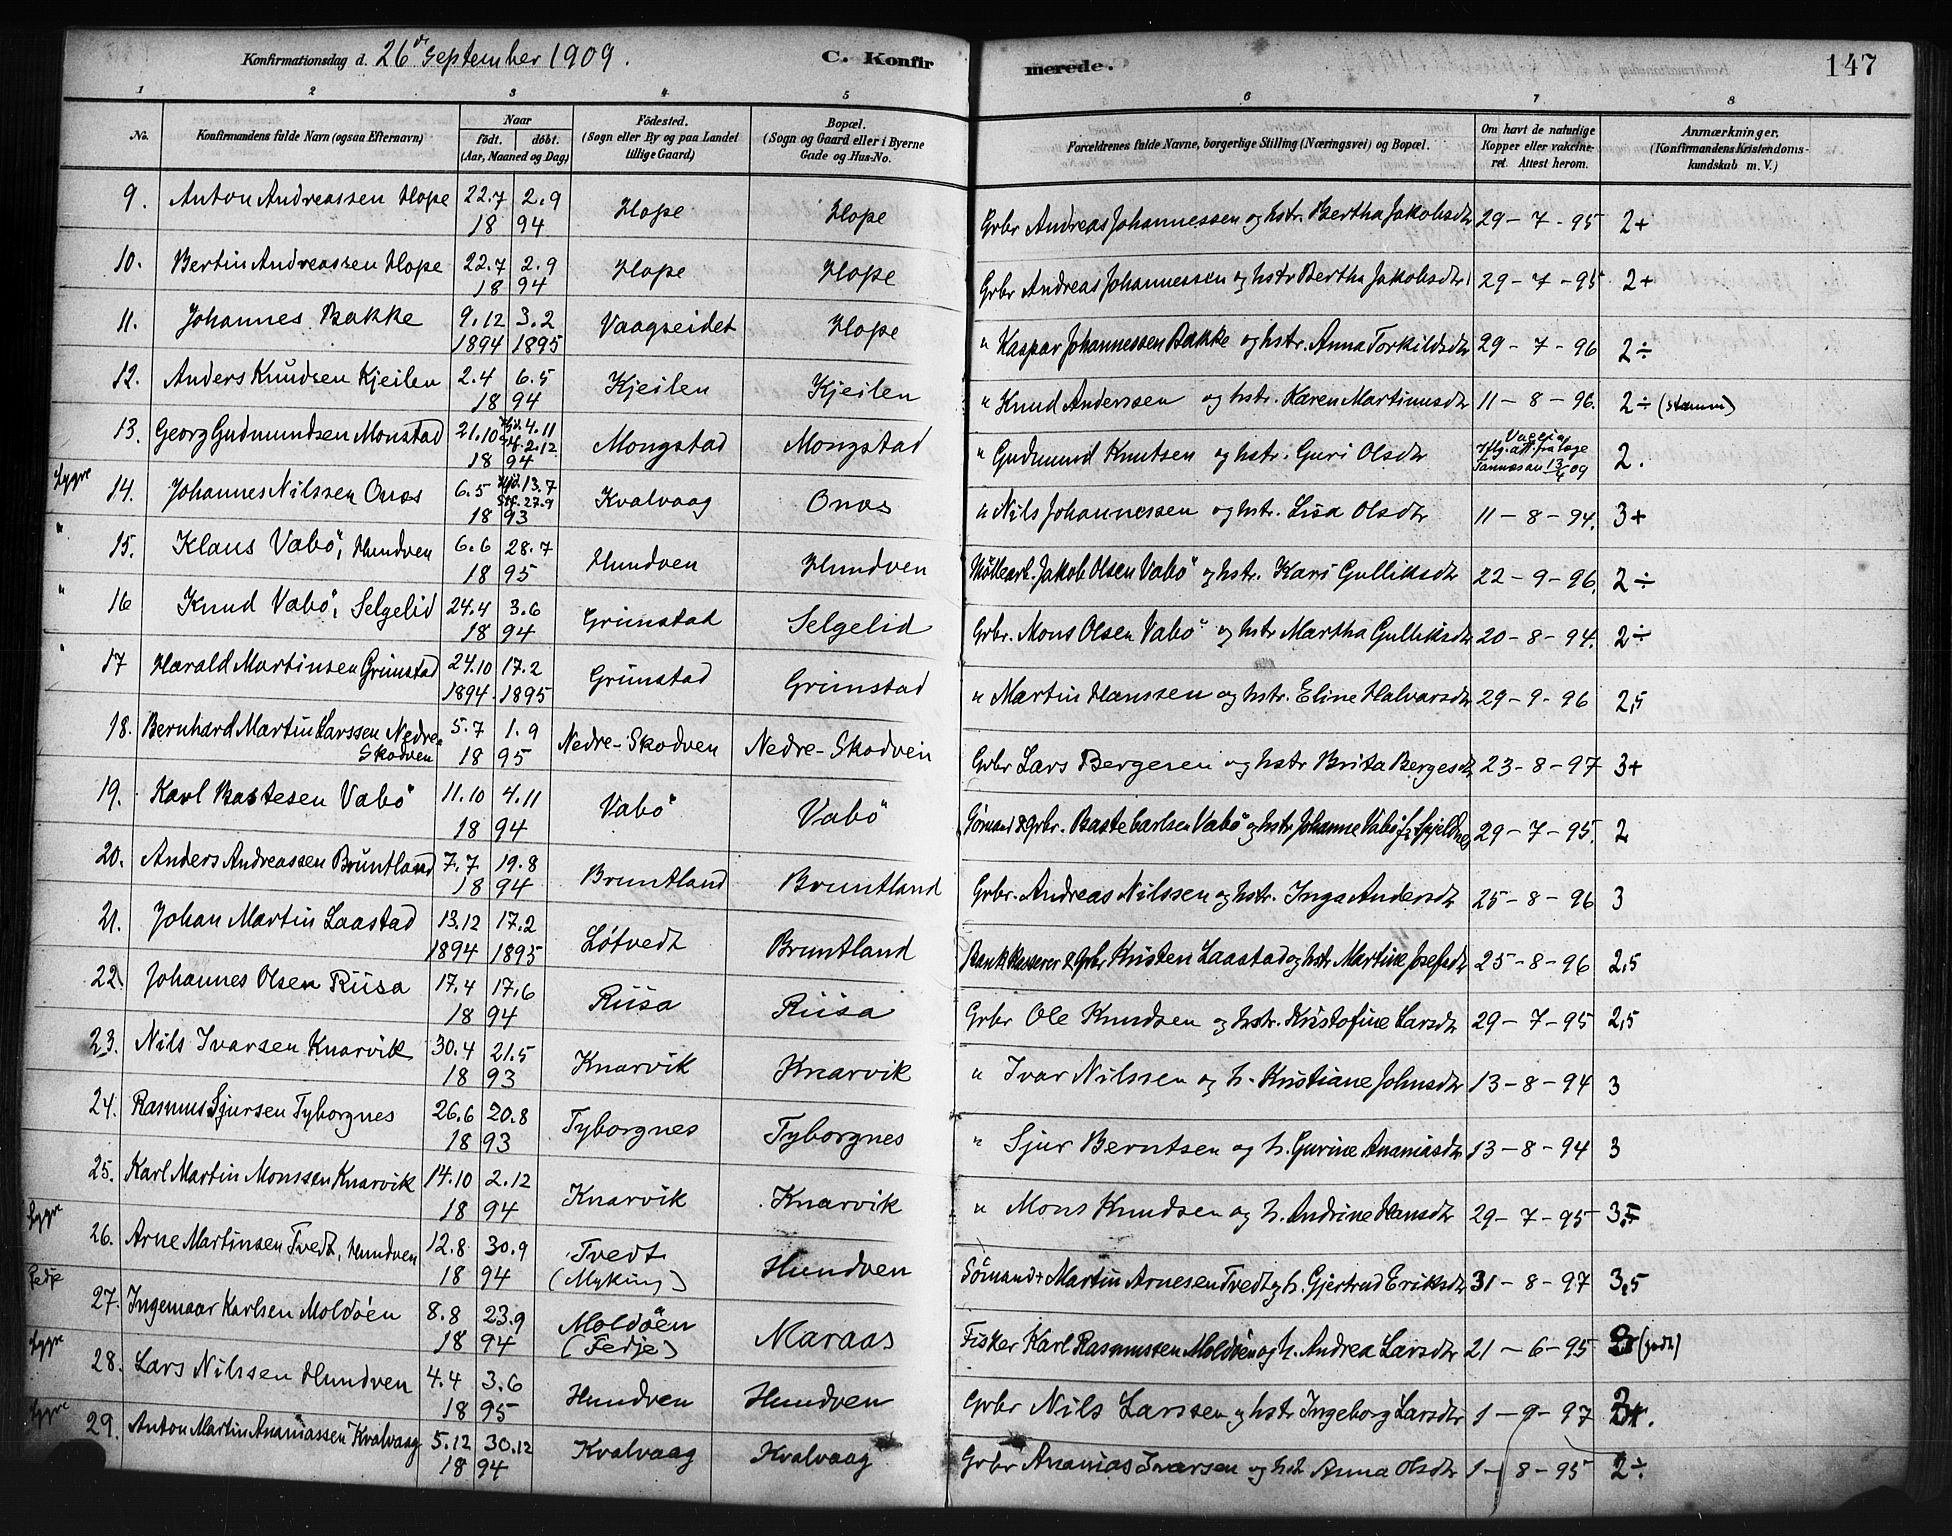 Konfirmationsdag d. 26de September 1909.
C. Konfir merede.
147
1 2 3 4 5 6 7 8
No. Konfirmandens fulde Navn (ogsaa Efternavn) Naar födt. döbt. (Aar, Maaned og Dag) Födested. (Sogn eller By og paa Landet tillige Gaard) Bopæl. (Sogn og Gaard eller i Byerne Gade og Hus-No. Forældrenes fulde Navne, borgerlige Stilling (Næringsvei) og Bopæl. Om havt de naturlige Kopper eller vakcineret. Attest herom. Anmærkninger. (Konfirmandens Kristendomskundskab m. V.)
9. Anton Andreassen Hope 22.7 2.9 18 94 Hope Hope Grbr Andreas Johannessen og hstr. Bertha Jakobsdtr 29-7-95 2+
10. Bertin Andreassen Hope 22.7 2.9 18 94 Hope Hope Grbr Andreas Johannessen og hstr Bertha Jakobsdtr 29-7-95 2+
11. Johannes Bakke 9.12 3.2 1894 1895 Vaagseidet Hope " Kaspar Johannessen Bakke og hstr. Anna Torkildsdtr 29-7-96 2÷
12. Anders Knudsen Kjeilen 2.4 6.5 18 94 Kjeilen Kjeilen " Knud Anderssen og hstr. Karen Martinusdtr 11-8-96. 2÷ (stamm)
13. Georg Gudmundsen Monstad 21.10 Hjd. 4.11 Stf. 2.12 18 94 Mongstad Mongstad " Gudmund Knutsen og hstr. Guri Olsdtr 2.
Lygre 14. Johannes Nilssen Onas 6.5 Hjd. 13.7 Stf. 27.9 18 93 Kvalvaag Onas " Nils Johannessen og hstr. Lisa Olsdtr 11-8-94. 3+
" 15. Klaus Vabö, Hundven 6.6 28.7 18 95 Hundven Hundven Möllearb. Jakob Olsen Vabö og hstr. Kari Gulliksdtr 22-9-96. 2÷
" 16 Knud Vabö, Selgelid 24.4 3.6 18 94 Grimstad Selgelid Grbr. Mons Olsen Vabö og hstr Martha Gulliksdtr 20-8-94. 2÷
" 17 Harald Martinsen Grimstad 24.10 17.2 1894. 1895 Grimstad Grimstad " Martin Hanssen og hstr. Eline Halvarsdtr 29-9-96 2,5
18. Bernhard Martin Larssen Nedre-Skodven 5.7 1.9 18 95 Nedre-Skodven Nedre-Skodvein Grbr Lars Bergesen og hstr Brita Bergesdtr 23-8-97 3+
19. Karl Bastesen Vabö 11.10 4.11 18 94 Vabö Vabö Sömand & Grbr. Baste Carlsen Vabö og hstr Johanne Vabö 29-7-95. 2
20. Anders Andreassen Bruntland 7.7 19.8 18 94 Bruntland Bruntland Grbr. Andreas Nilssen og hstr. Inga Andersdtr 25-8-96 3
21. Johan Martin Laastad 13.12 17.2 1894 1895 Løtvedt Bruntland Bankkasserer & Grbr Kristen Laastad og hstr Martine Josefsdtr 25-8-96 2,5
22. Johannes Olsen Riisa 17.4 17.6 18 94 Riisa Riisa Grbr Ole Knudsen og hstr. Kristofine Larsdtr 29-7-95 2,5
23. Nils Ivarsen Knarvik 30.4 21.5 18 93 Knarvik Knarvik " Ivar Nilssen og h. Kristiane Johnsdtr 13-8-94 3
24. Rasmus Sjursen Tyborgnes 26.6 20.8 18 93 Tyborgnes Tyborgnes " Sjur Berntsen og h. Gurine Ananiasdtr 13-8-94 3
25. Karl Martin Monssen Knarvik 14.10 2.12 18 94 Knarvik Knarvik " Mons Knudsen og h. Andrine Hansdtr 29-7-95 3,5
Lygre 26. Arne Martinsen Tvedt, Hundven 12.8 30.9 18 94 Tvedt (Myking) Hundven Sömand Martin Arnesen Tvedt og h. Gjertrud Eriksdtr 31-8-97 3,5
Fedje 27. Ingemaar Karlsen Moldöen 8.8 23.9 18 94 Moldöen (Fedje) Maraas Fisker Karl Rasmussen Moldöen og h. Andrea Larsdtr 21-6-95
Lygre 28. Lars Nilssen Hundven 4.4 3.6 18 95 Hundven Hundven Grbr Nils Larssen og hstr Ingeborg Larsdtr 1-9-97
Lygre 29. Anton Martin Ananiassen Kvalvaag 5.12 30.12 18 94 Kvalvaag Kvalvaag Grbr Ananias Ivarsen og hst Anna Olsdtr 1-8-95 2÷